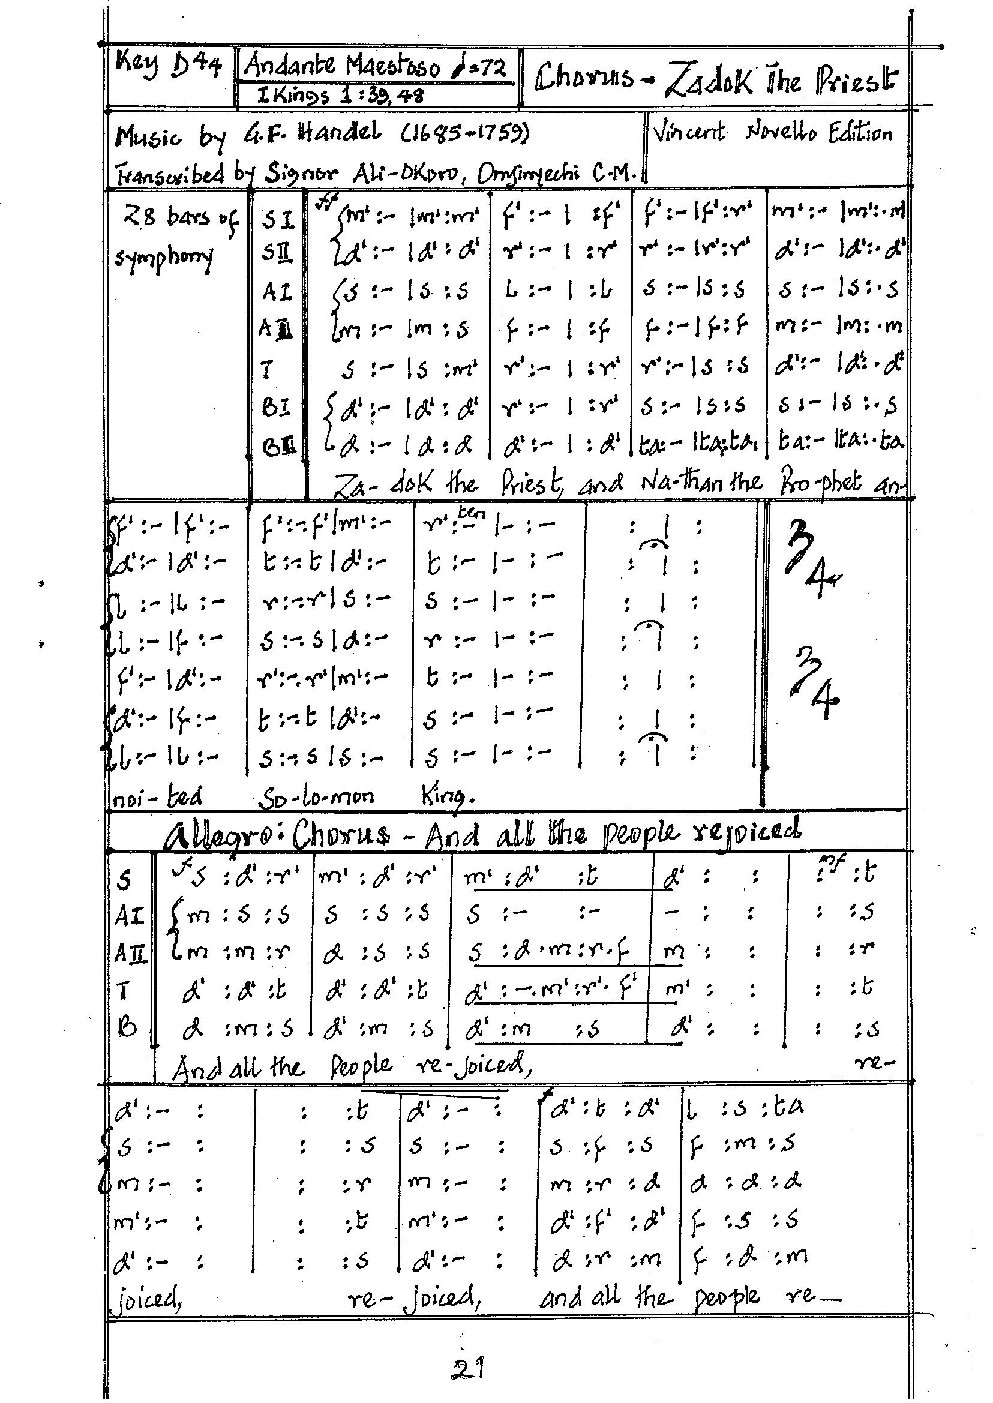 Key D 4/4 Andante Maestoso ♩=72 Chorus - Zadok The Priest
I Kings 1:39, 48
Music by G.F. Handel (1685-1759) Vincent Novello Edition
Transcribed by Signor Ali-Okoro, C.M.
28 bars of symphony
SI ff m' :- |m' :m' f' :- | :f' f' :- |f' :r' m' :- |m' :.m'
SII d' :- |d' :d' r' :- | :r' r' :- |r' :r' d' :- |d' :.d'
AI s :- |s :s l :- | :l s :- |s :s s :- |s :.s
AII m :- |m :s f :- | :f f :- |f :f m :- |m :.m
T s :- |s :m' r' :- | :r' r' :- |s :s d' :- |d' :.d'
BI d' :- |d' :d' r' :- | :r' s :- |s :s s :- |s :.s
BII d :- |d :d d' :- | :d' ta :- |ta, :ta, ta :- |ta :.ta
Za- dok the Priest, and Na-than the Pro-phet an-
f' :- |f' :- f' :-.f' |m' :- r' :- ten |- :- : | : 3/4
d' :- |d' :- t :-.t |d' :- t :- |- :- : | :
l :- |l :- r :-.r |s :- s :- |- :- : | :
l :- |f :- s :-.s |d :- r :- |- :- : | :
f' :- |d' :- r' :-.r' |m' :- t :- |- :- : | : 3/4
d' :- |f :- t :-.t |d' :- s :- |- :- : | :
l :- |l :- s :-.s |s :- s :- |- :- : | :
noi-ted So-lo-mon King.
Allegro: Chorus - And all the people rejoiced
S f s :d' :r' m' :d' :r' m' :d' :t d' : : : mf :t
AI m :s :s s :s :s s :- :- - : : : :s
AII m :m :r d :s :s s :d.m :r.f m : : : :r
T d' :d' :t d' :d' :t d' :-.m' :r'.f' m' : : : :t
B d :m :s d' :m :s d' :m :s d' : : : :s
And all the People re-joiced, re-
d' :- : : :t d' :- : f d' :t :d' l :s :ta
s :- : : :s s :- : s :f :s f :m :s
m :- : : :r m :- : m :r :d d :d :d
m' :- : : :t m' :- : d' :f' :d' f :s :s
d' :- : : :s d' :- : d :r :m f :d :m
joiced, re- joiced, and all the people re-
21